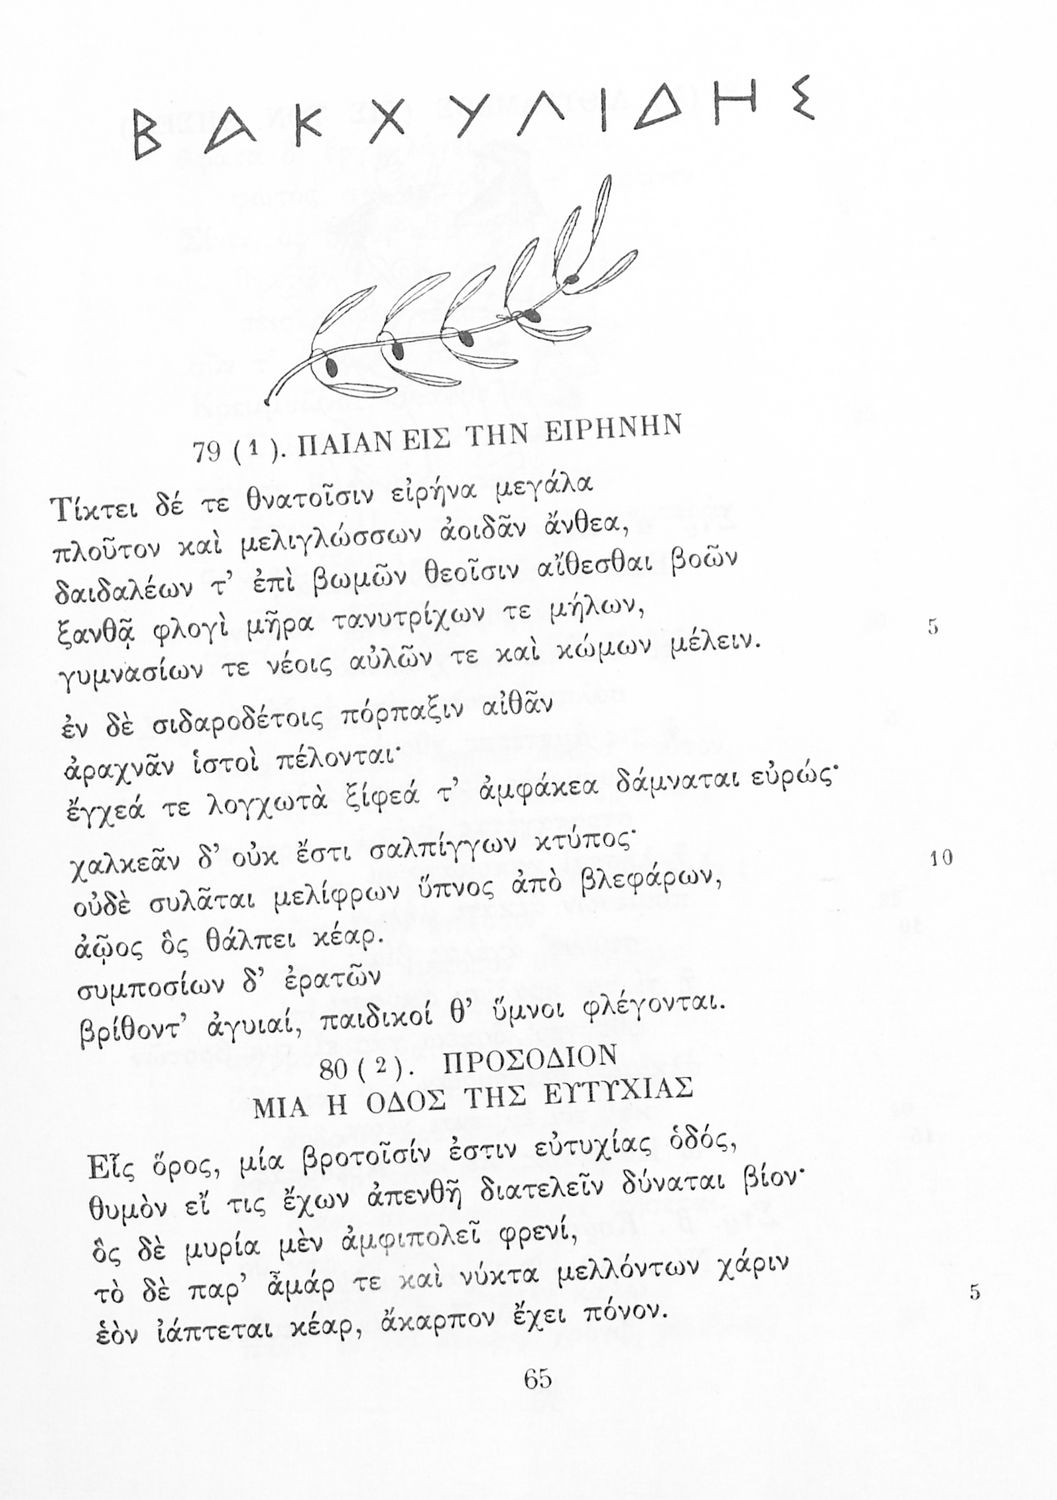 ΒΑΚΧΥΛΙΔΗΣ
79 (1). ΠΑΙΑΝ ΕΙΣ ΤΗΝ ΕΙΡΗΝΗΝ
Τίκτει δέ τε θνατοῖσιν εἰρήνα μεγάλα
πλοῦτον καὶ μελιγλώσσων ἀοιδᾶν ἄνθεα,
δαιδαλέων τ’ ἐπὶ βωμῶν θεοῖσιν αἴθεσθαι βοῶν
ξανθᾷ φλογὶ μῆρα τανυτρίχων τε μήλων, 5
γυμνασίων τε νέοις αὐλῶν τε καὶ κώμων μέλειν.
ἐν δὲ σιδαροδέτοις πόρπαξιν αἰθᾶν
ἀραχνᾶν ἱστοὶ πέλονται·
ἔγχεά τε λογχωτὰ ξίφεά τ’ ἀμφάκεα δάμναται εὐρώς·
χαλκεᾶν δ’ οὐκ ἔστι σαλπίγγων κτύπος· 10
οὐδὲ συλᾶται μελίφρων ὕπνος ἀπὸ βλεφάρων,
ἀῷος ὃς θάλπει κέαρ.
συμποσίων δ’ ἐρατῶν
βρίθοντ’ ἀγυιαί, παιδικοί θ’ ὕμνοι φλέγονται.
80 (2). ΠΡΟΣΟΔΙΟΝ
ΜΙΑ Η ΟΔΟΣ ΤΗΣ ΕΥΤΥΧΙΑΣ
Εἷς ὅρος, μία βροτοῖσίν ἐστιν εὐτυχίας ὁδός,
θυμὸν εἴ τις ἔχων ἀπενθῆ διατελεῖν δύναται βίον·
ὃς δὲ μυρία μὲν ἀμφιπολεῖ φρενί,
τὸ δὲ παρ’ ἆμάρ τε καὶ νύκτα μελλόντων χάριν
ἑὸν ἰάπτεται κέαρ, ἄκαρπον ἔχει πόνον. 5
65